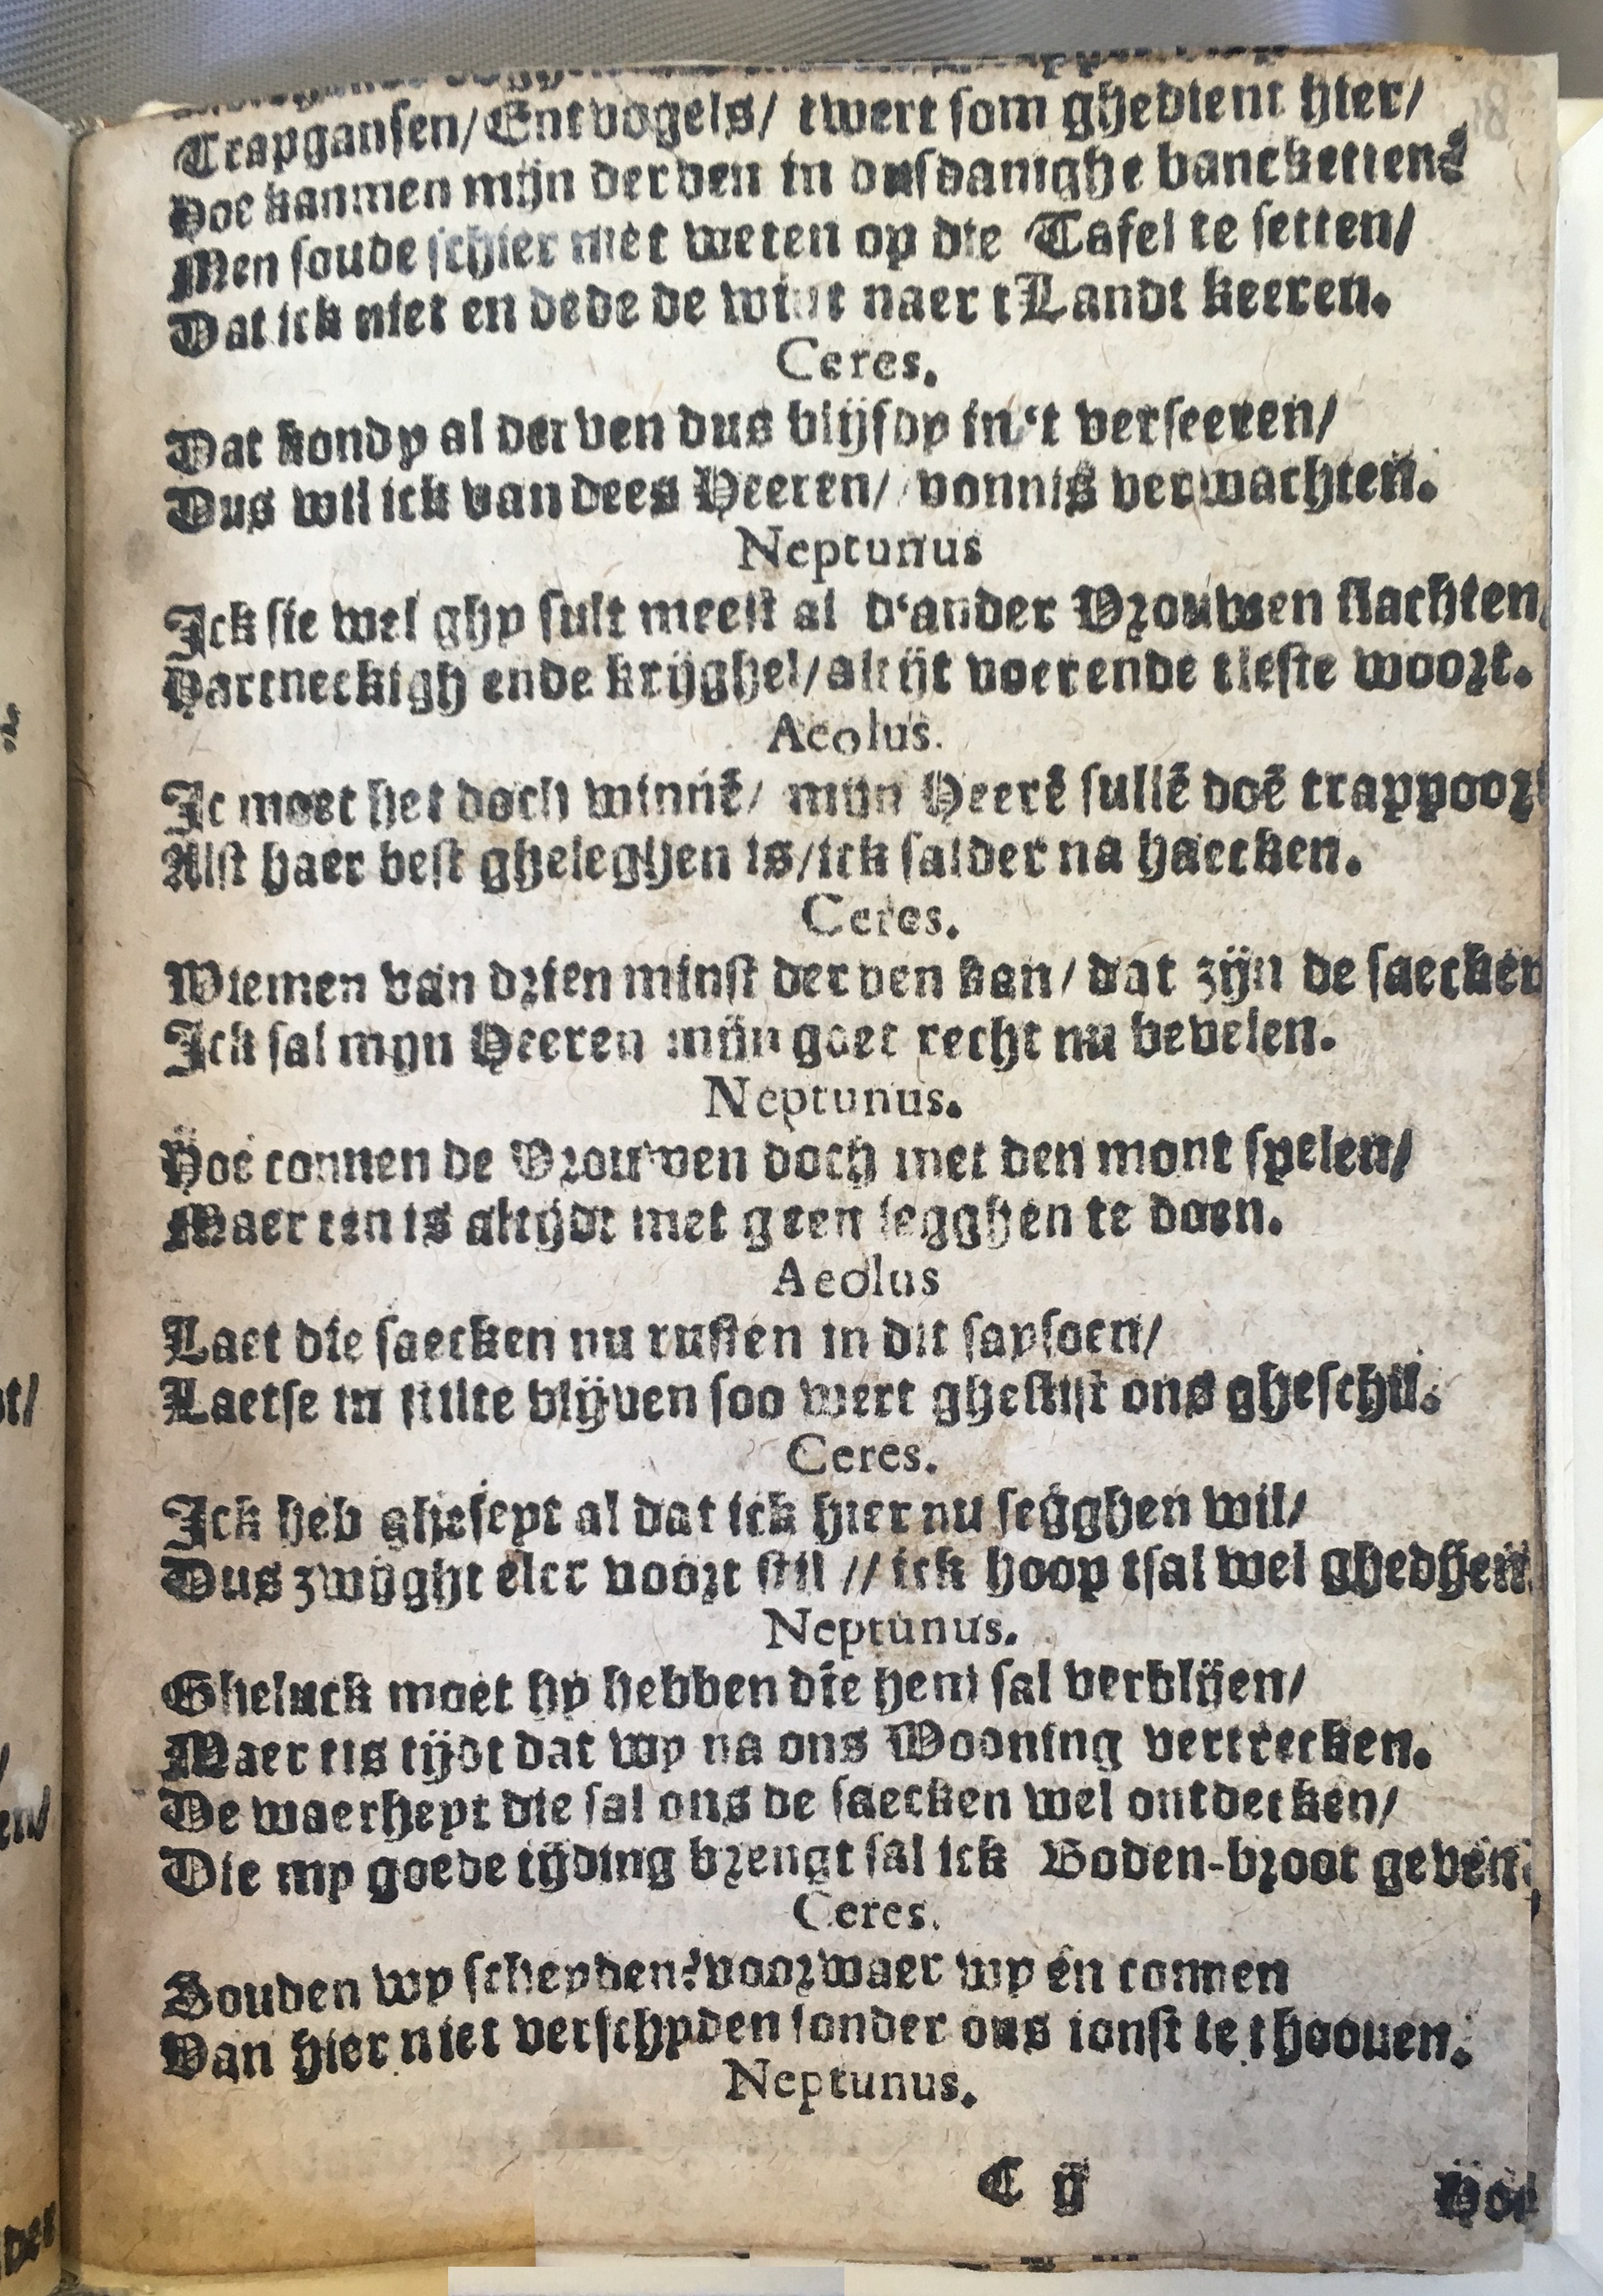 Trapgansen/ Entvogels/ twert som ghedient hier/
Hoe kanmen mijn derven in dusdanighe banckettens
Men soude schier niet weten op die Tafel te setten/
Dat ick niet en dede de wint naer tLandt keeren.
Ceres.
Dat kondy al derven dus blijfdy in't verseeren/
Dus wil ick van dees Heeren/ vonnis verwachten.
Neptunus
Ick sie wel ghy sult meest al d'ander Vrouwen slachten/
Hartneckigh ende krijghel/ altijt voerende tleste woort.
Aeolus.
Ic moet het doch winnē/ mijn Heerē sullē doē trappoort
Alst haer best gheleghen is/ ick salder na haecken.
Ceres.
Wiemen van drien minst derven kan/ dat zijn de saecken
Ick sal mijn Heeren mijn goet recht nu bevelen.
Neptunus.
Hoe connen de Vrouwen doch met den mont spelen/
Maer ten is altijdt met geen segghen te doen.
Aeolus
Laet die saecken nu rusten in dit saysoen/
Laetse in stilte blijven soo wert ghestist ons gheschil.
Ceres.
Ick heb gheseyt al dat ick hier nu segghen wil/
Dus zwijght elct voort stil // ick hoop tsal wel ghedijen.
Neptunus.
Gheluck moet hy hebben die hem sal verblijen/
Maer tis tijdt dat wy na ons Wooning vertrecken.
De waerheyt die sal ons de saecken wel ontdecken/
Die my goede tijding brengt sal ick Boden-broot geven,
Ceres.
Souden wy scheyden? voorwaer wy en connen
Van hier niet verschyden sonder ons ionst te thoonen.
Neptunus.
C ij
Hoe